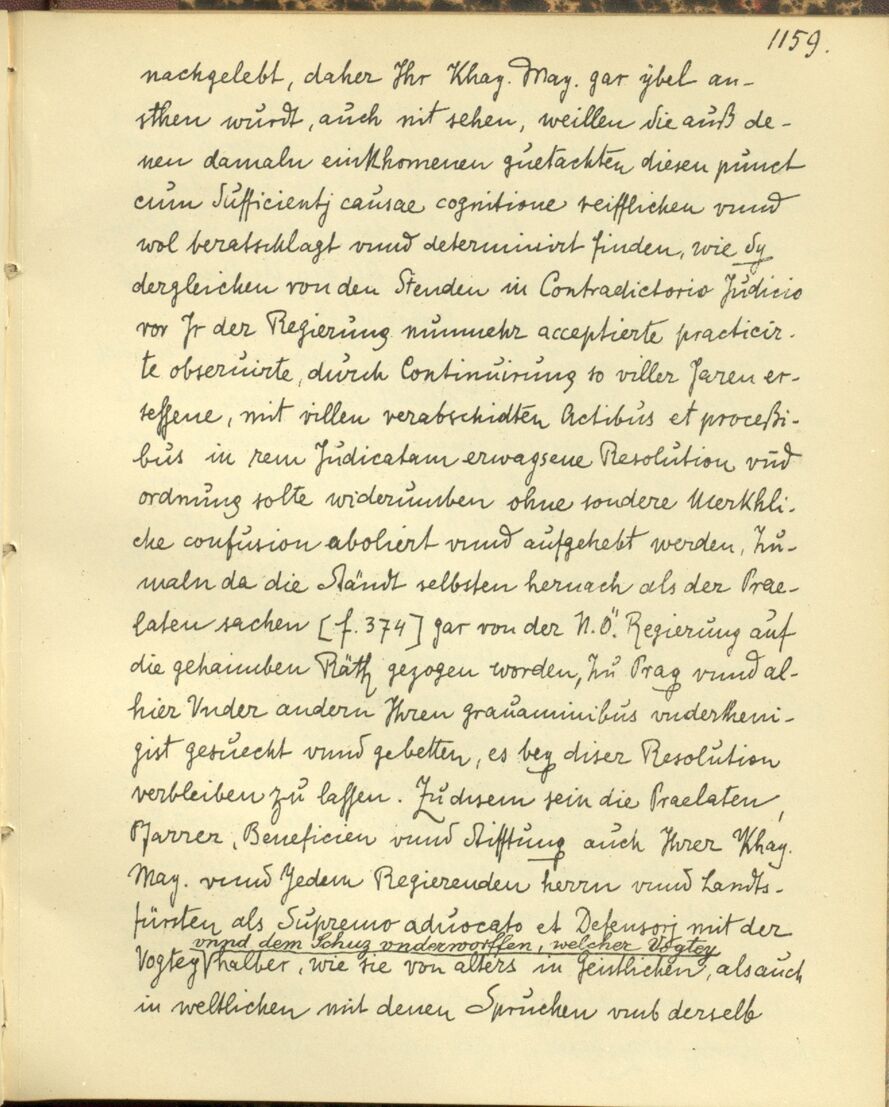 1159.
nachgelebt, daher Ihr Khay. May. gar ybel an-
sthen wurdt, auch nit sehen, weillen Sie auß de-
nen damaln einkhomenen guetachten diesen punct
cum Sufficientj causae cognitione reifflichen vnnd
wol beratschlagt vnnd determinirt finden, wie Sy
dergleichen von den Stenden in Contradictorio Judicio
vor Jr der Regierung nunmehr acceptierte practicir-
te obseruirte, durch Continuirung so viller Jaren er-
sessene, mit villen verabschidten Actibus et proceßi-
bus in rem Judicatam erwagsene Resolution vnd
ordnung solte widerumben ohne sondere Merkhli-
che confusion aboliert vnnd aufgehebt werden, Zu-
maln da die Ständt selbsten hernach als der Prae-
laten sachen [f. 374] gar von der N.Ö. Regierung auf
die gehaimben Räth gezogen worden, Zu Prag vnnd al-
hier Vnder andern Ihren grauaminibus vndertheni-
gist gesuecht vnnd gebetten, es bey diser Resolution
verbleiben zu lassen. Zu disem sein die Praelaten,
Pfarrer, Beneficien vnnd Stifftung auch Ihrer Khay.
May. vnnd Jedem Regierenden herrn vnnd Landts-
fürsten als Supremo aduocato et Defensorj mit der
vnnd dem Schuz vnderworffen, welcher Vogtey
Vogtey halber, wie sie von alters in Geistlichen, als auch
in weltlichen mit denen Spruchen vmb derselb